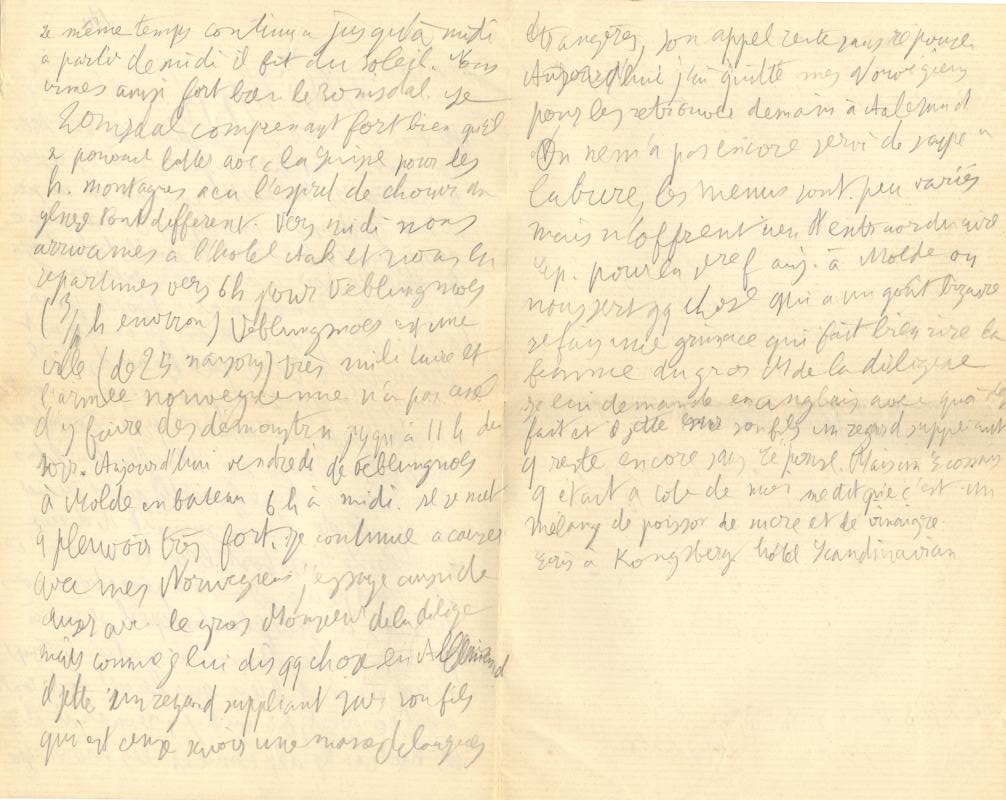 ce même temps continua jusqu'à midi
a partir de midi il fit du soleil. Nous
vimes ainsi fort bien le Romsdal. Le
Romsdal comprenant fort bien qu'il
ne pouvait lutter avec la Suisse pour les
h. montagnes a eu l'esprit de choisir un
genre tout different. Vers midi nous
arrivames à l'hotel Aak et nous en
repartimes vers 6h pour Veblungsnoes
( h environ) Veblungsnoes est une
ville (de 25 maisons) très militaire et
l'armée norwegienne n'a pas cessé
d'y faire des démonstr. jusqu'à 11 h du
soir. Aujourd'hui vendredi de Veblungsnoes
à Molde en bateau 6h à midi. Il se met
à pleuvoir très fort. Je continue a causer
avec mes Norwegiens, j'essaye aussi de
causer avec le gros Monsieur de la dilige
mais comme je lui dis qq chose en Allemand
il jette un regard suppliant vers son fils
qui est censé savoir une masse de langues
étrangères, son appel reste sans réponse.
Aujourd'hui j'ai quitté mes Norwegiens
pour les retrouver demain à Aalesund
On ne m'a pas encore servi de soupe
la bière, les menus sont peu variés
mais n'offrent rien d'extraordinaire
pour la fois auj. à Molde on
nous sert qq chose qui a un goût bizarre
je fais une grimace qui fait bien rire la
femme du gros M de la diligence
je lui demande en anglais avec quoi c'est
fait et il jette sur son fils un regard suppliant
q reste encore sans réponse. Mais un Ecossais
q était a coté de moi me dit que c'est un
mélange de poisson de sucre et de vinaigre
Ecris à Kongsberg hôtel Scandinavian